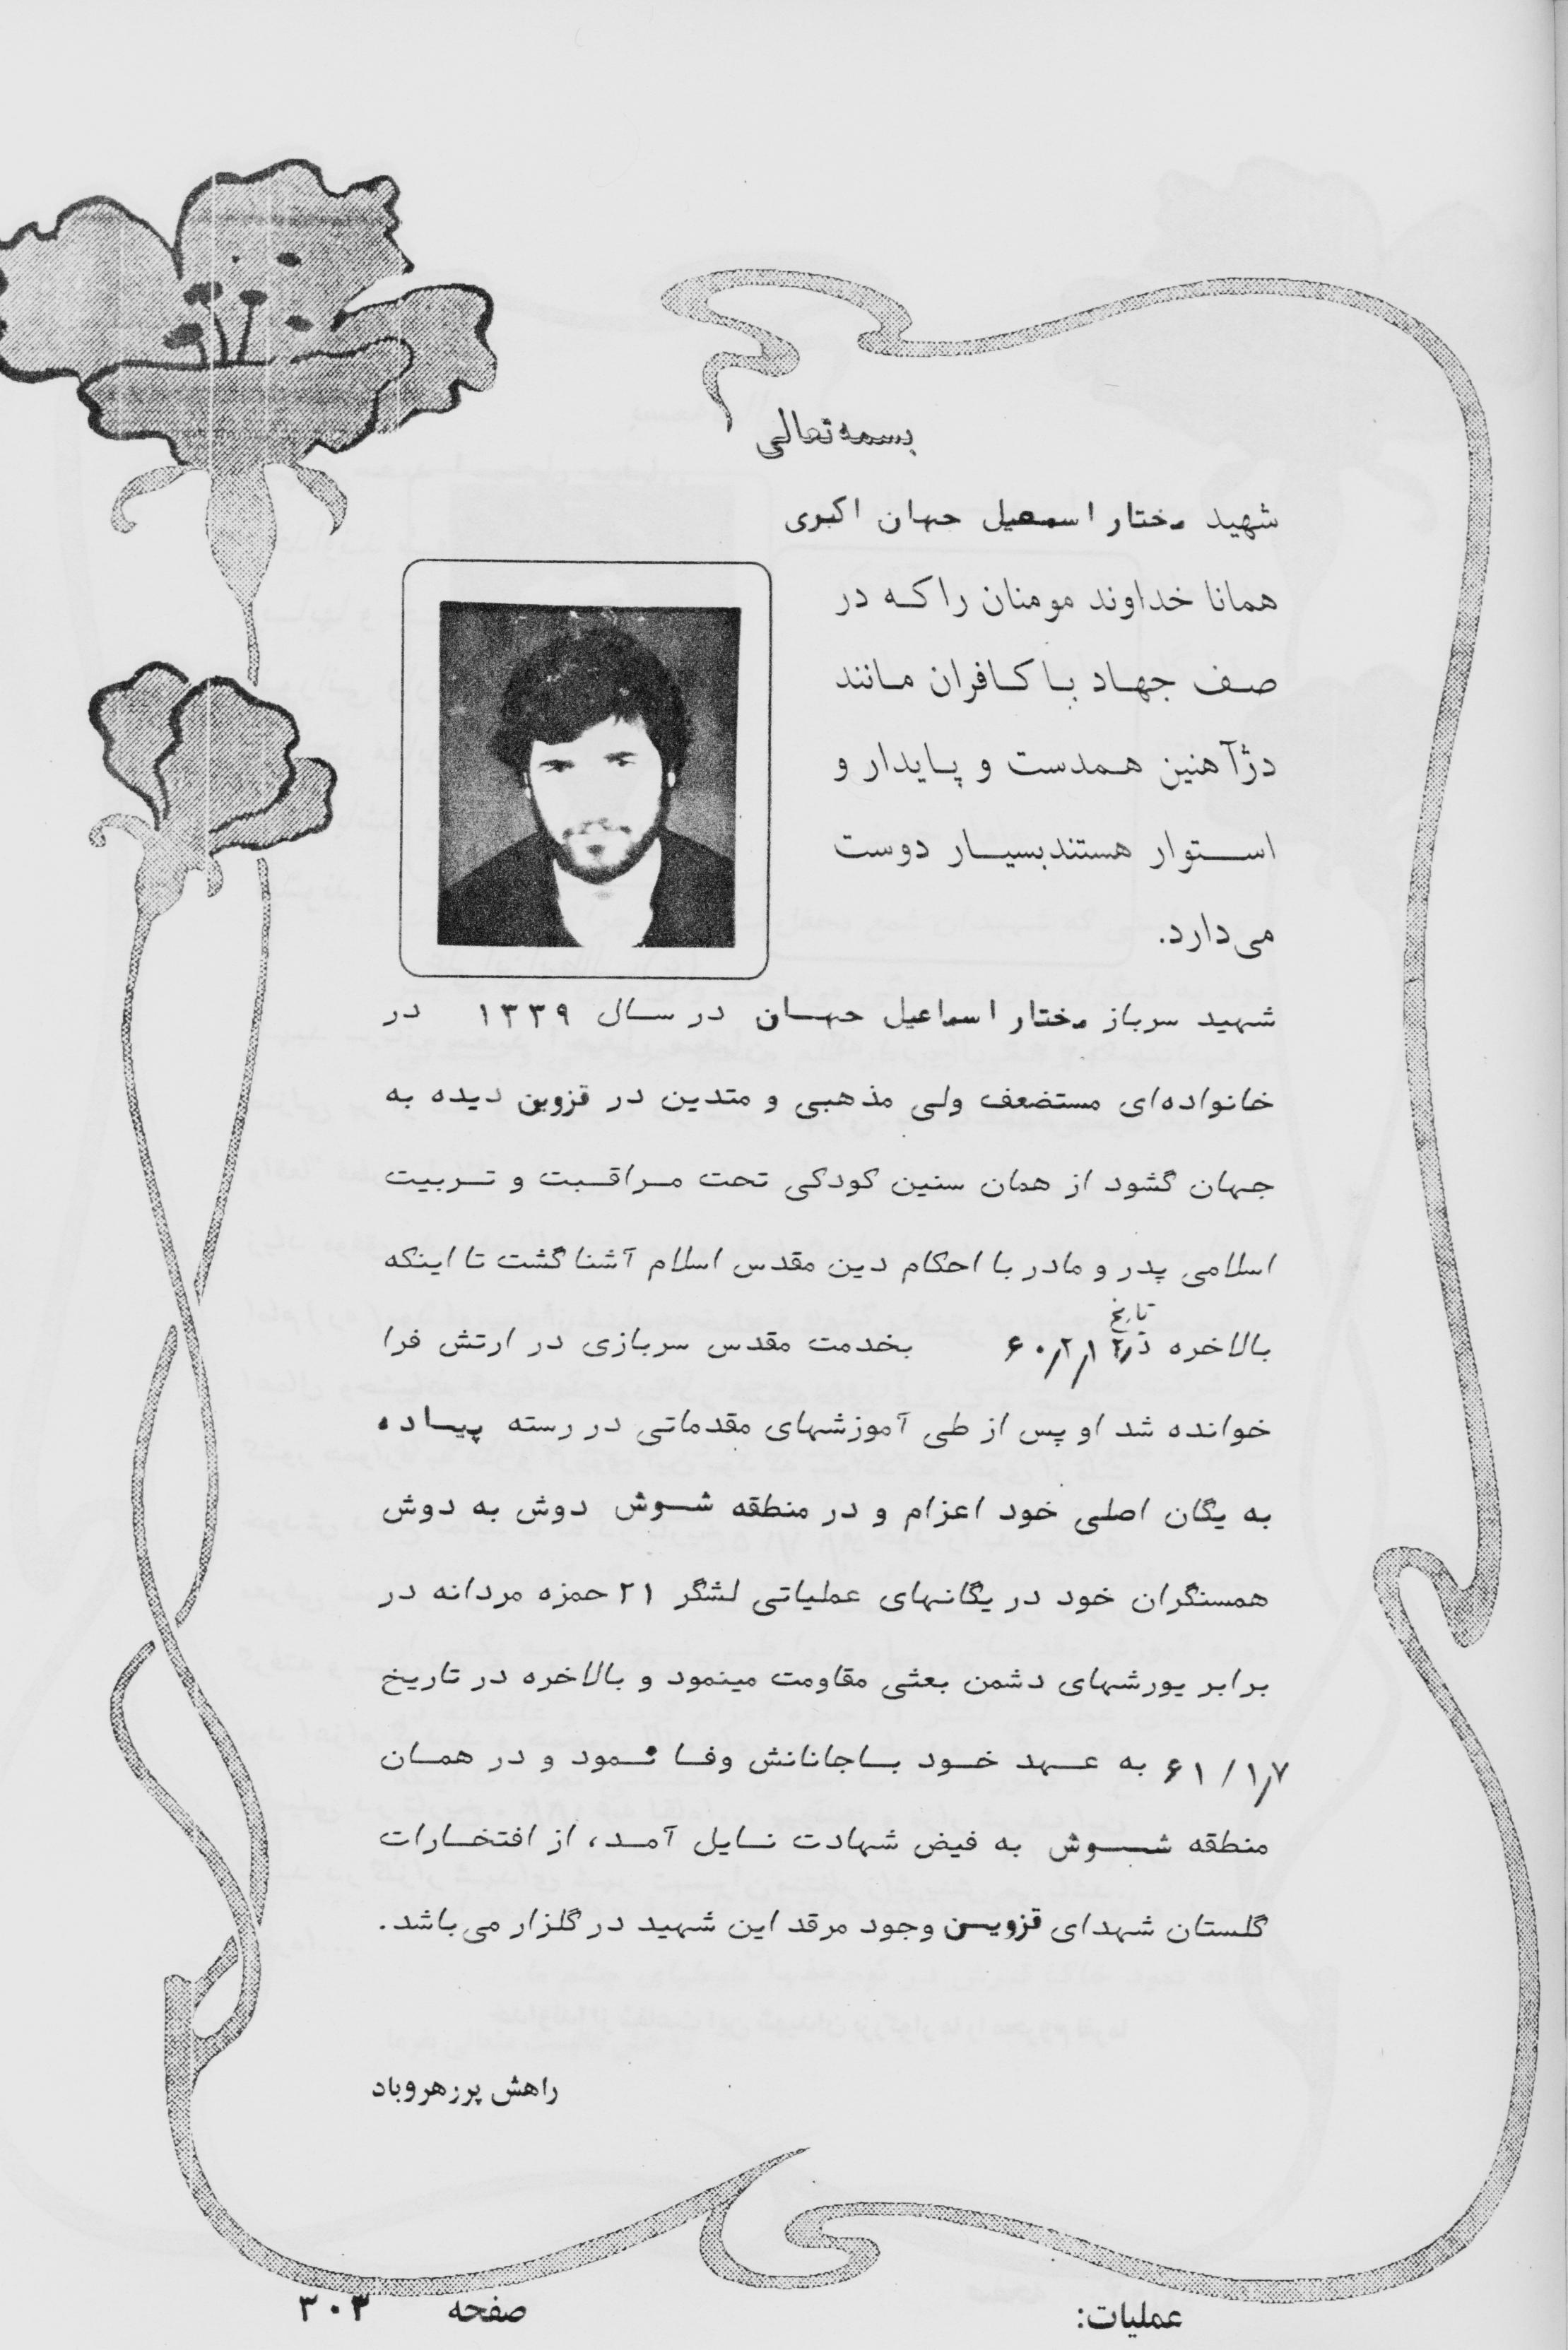 بسمه تعالی
شهید مختار اسمعیل جهان اکبری
همانا خداوند مومنان را که در
صف جهاد با کافران مانند
دژ آهنین همدست و پایدار و
استوار هستند بسیار دوست
می‌دارد.
شهید سرباز مختار اسماعیل جهان در سال ۱۳۳۹ در
خانواده‌ای مستضعف ولی مذهبی و متدین در قزوین دیده به
جهان گشود از همان سنین کودکی تحت مراقبت و تربیت
اسلامی پدر و مادر با احکام دین مقدس اسلام آشنا گشت تا اینکه
بالاخره در تاریخ ۶۰٫۲٫۱۲ بخدمت مقدس سربازی در ارتش فرا
خوانده شد او پس از طی آموزشهای مقدماتی در رسته پیاده
به یگان اصلی خود اعزام و در منطقه شوش دوش به دوش
همسنگران خود در یگانهای عملیاتی لشگر ۲۱ حمزه مردانه در
برابر یورشهای دشمن بعثی مقاومت مینمود و بالاخره در تاریخ
۶۱/۱٫۷ به عهد خود با جانانش وفا نمود و در همان
منطقه شوش به فیض شهادت نایل آمد، از افتخارات
گلستان شهدای قزوین وجود مرقد این شهید در گلزار می‌باشد.
راهش پر زهرو باد
عملیات: صفحه ۳۰۳